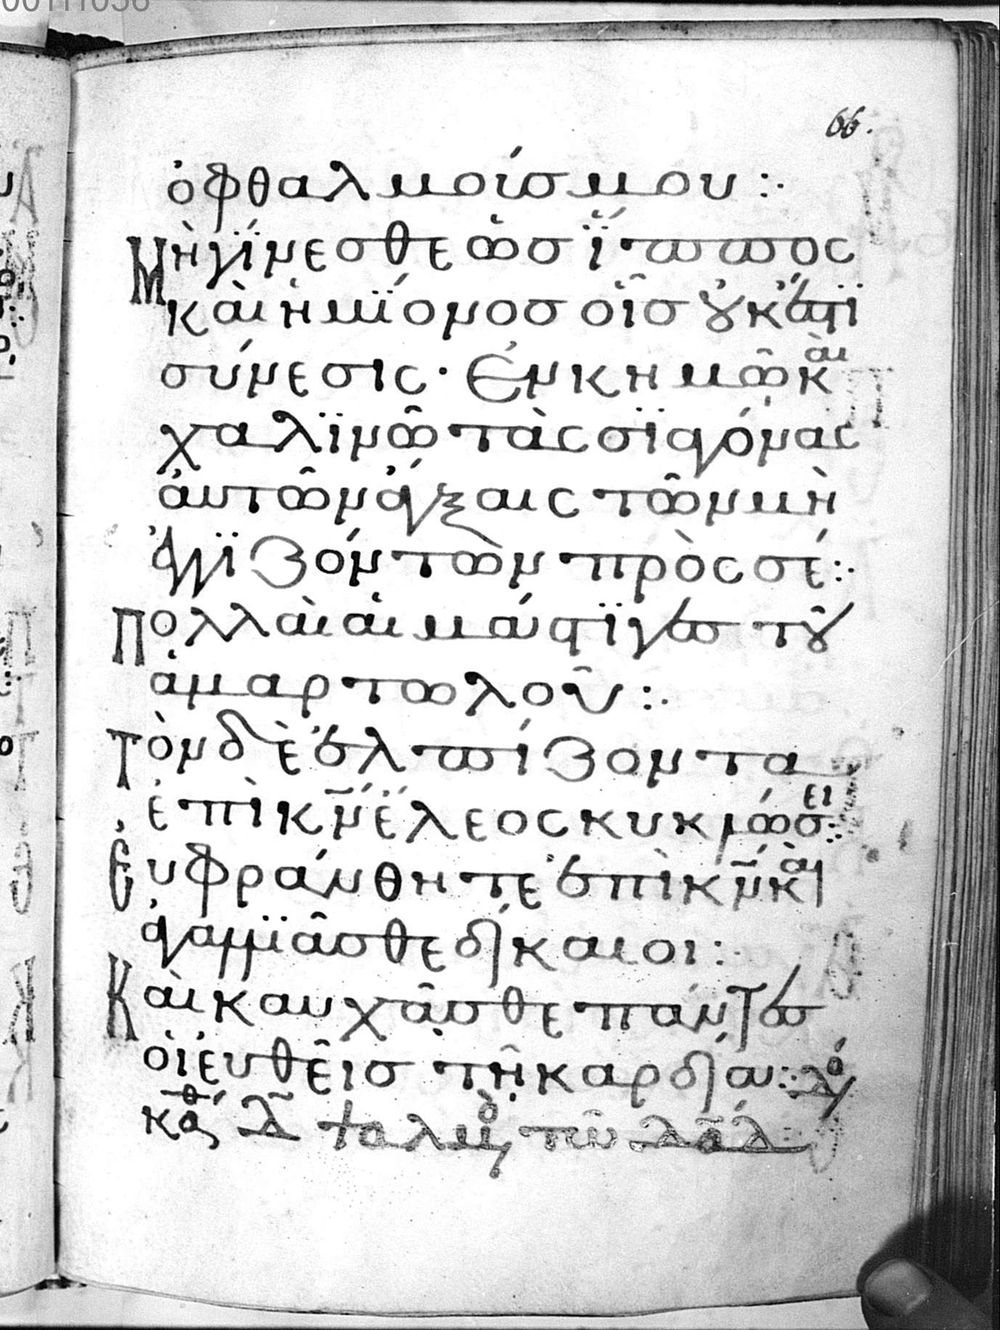 00111058
66.
ὀφθαλμούσμου :·
Μὴγίνεσθε ὡσ ἵππος
καὶ ἡμίονοσ οἷσ οὐκἔστϊ
σύνεσις · Ἐν κημῶ καὶ
χαλϊνῶ τὰς σϊαγόνας
ἀυτῶν ἄγξαις τῶν μὴ
ἐγγϊζόντων πρὸς σέ :·
Πολλαὶ αἱ μάστϊγεσ τοῦ
ἁμαρτωλοῦ :·
Τὸν δὲ ἐλπίζοντα
ἐπὶ κν̄ ἔλεος κυκλώσει :·
Ευφράνθητε ἐπὶ κν̄ καὶ
ἀγαλλϊᾶσθε δίκαιοι :
Καὶ καυχᾶσθε πάντεσ
οἱ ἐυθεῖσ τῆ καρδία :·